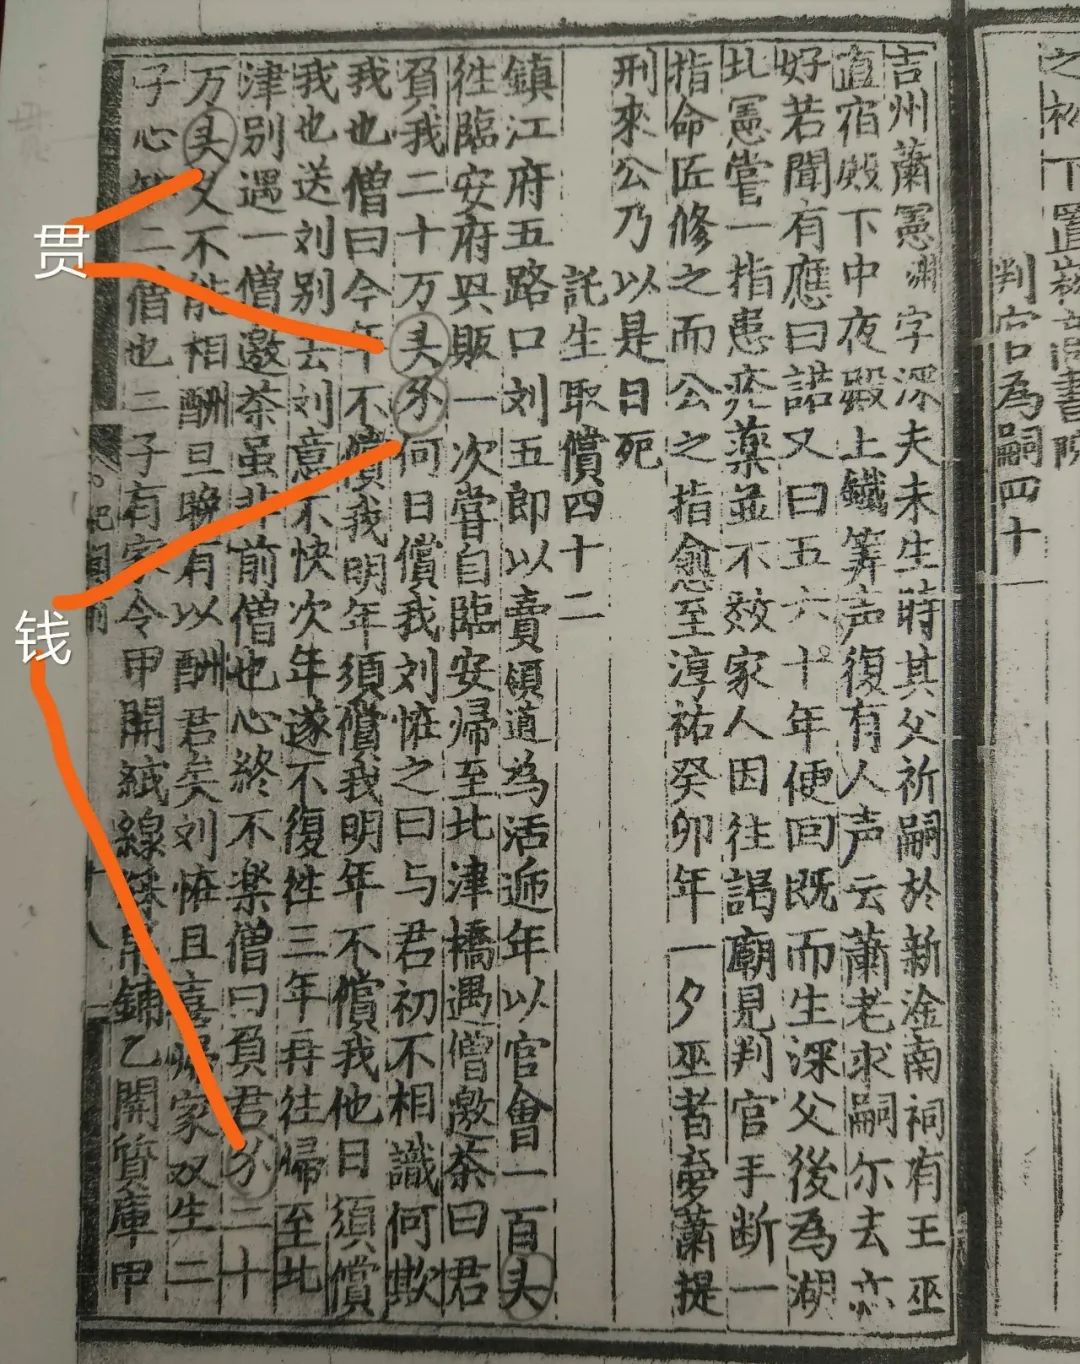 之祐下置叢
判官為嗣四十
吉州蕭憲渊字深夫未生時其父祈嗣於新淦南祠有王巫
直宿殿下中夜殿上鐵筭声復有人声云蕭老求嗣尔去亦
好若聞有應曰諾又曰五六十年便回既而生深父後為湖
北憲嘗一指患疾藥並不效家人因往謁廟見判官手断一
指命匠修之而公之指愈至淳祐癸卯年一夕巫者夢蕭提
刑來公乃以是日死
託生取償四十二
鎮江府五路口刘五郎以賣頭道為活逓年以官會一百夫
徃臨安府興販一次嘗自臨安歸至北津橋遇僧邀茶曰君
負我二十万夫㐱何日償我刘恠之曰与君初不相識何欺
我也僧曰今年不償我明年須償我明年不償我他日須償
我也送刘别去刘意不快次年遂不復徃三年再往歸至北
津别遇一僧邀茶虽非前僧也心終不楽僧曰負君㐱二十
万夫又不能相酬旦晚有以酬君矣刘恠且喜歸家双生二
子心知二僧也二子有家令甲開絨線鋪乙開質庫甲
十八
贯
钱